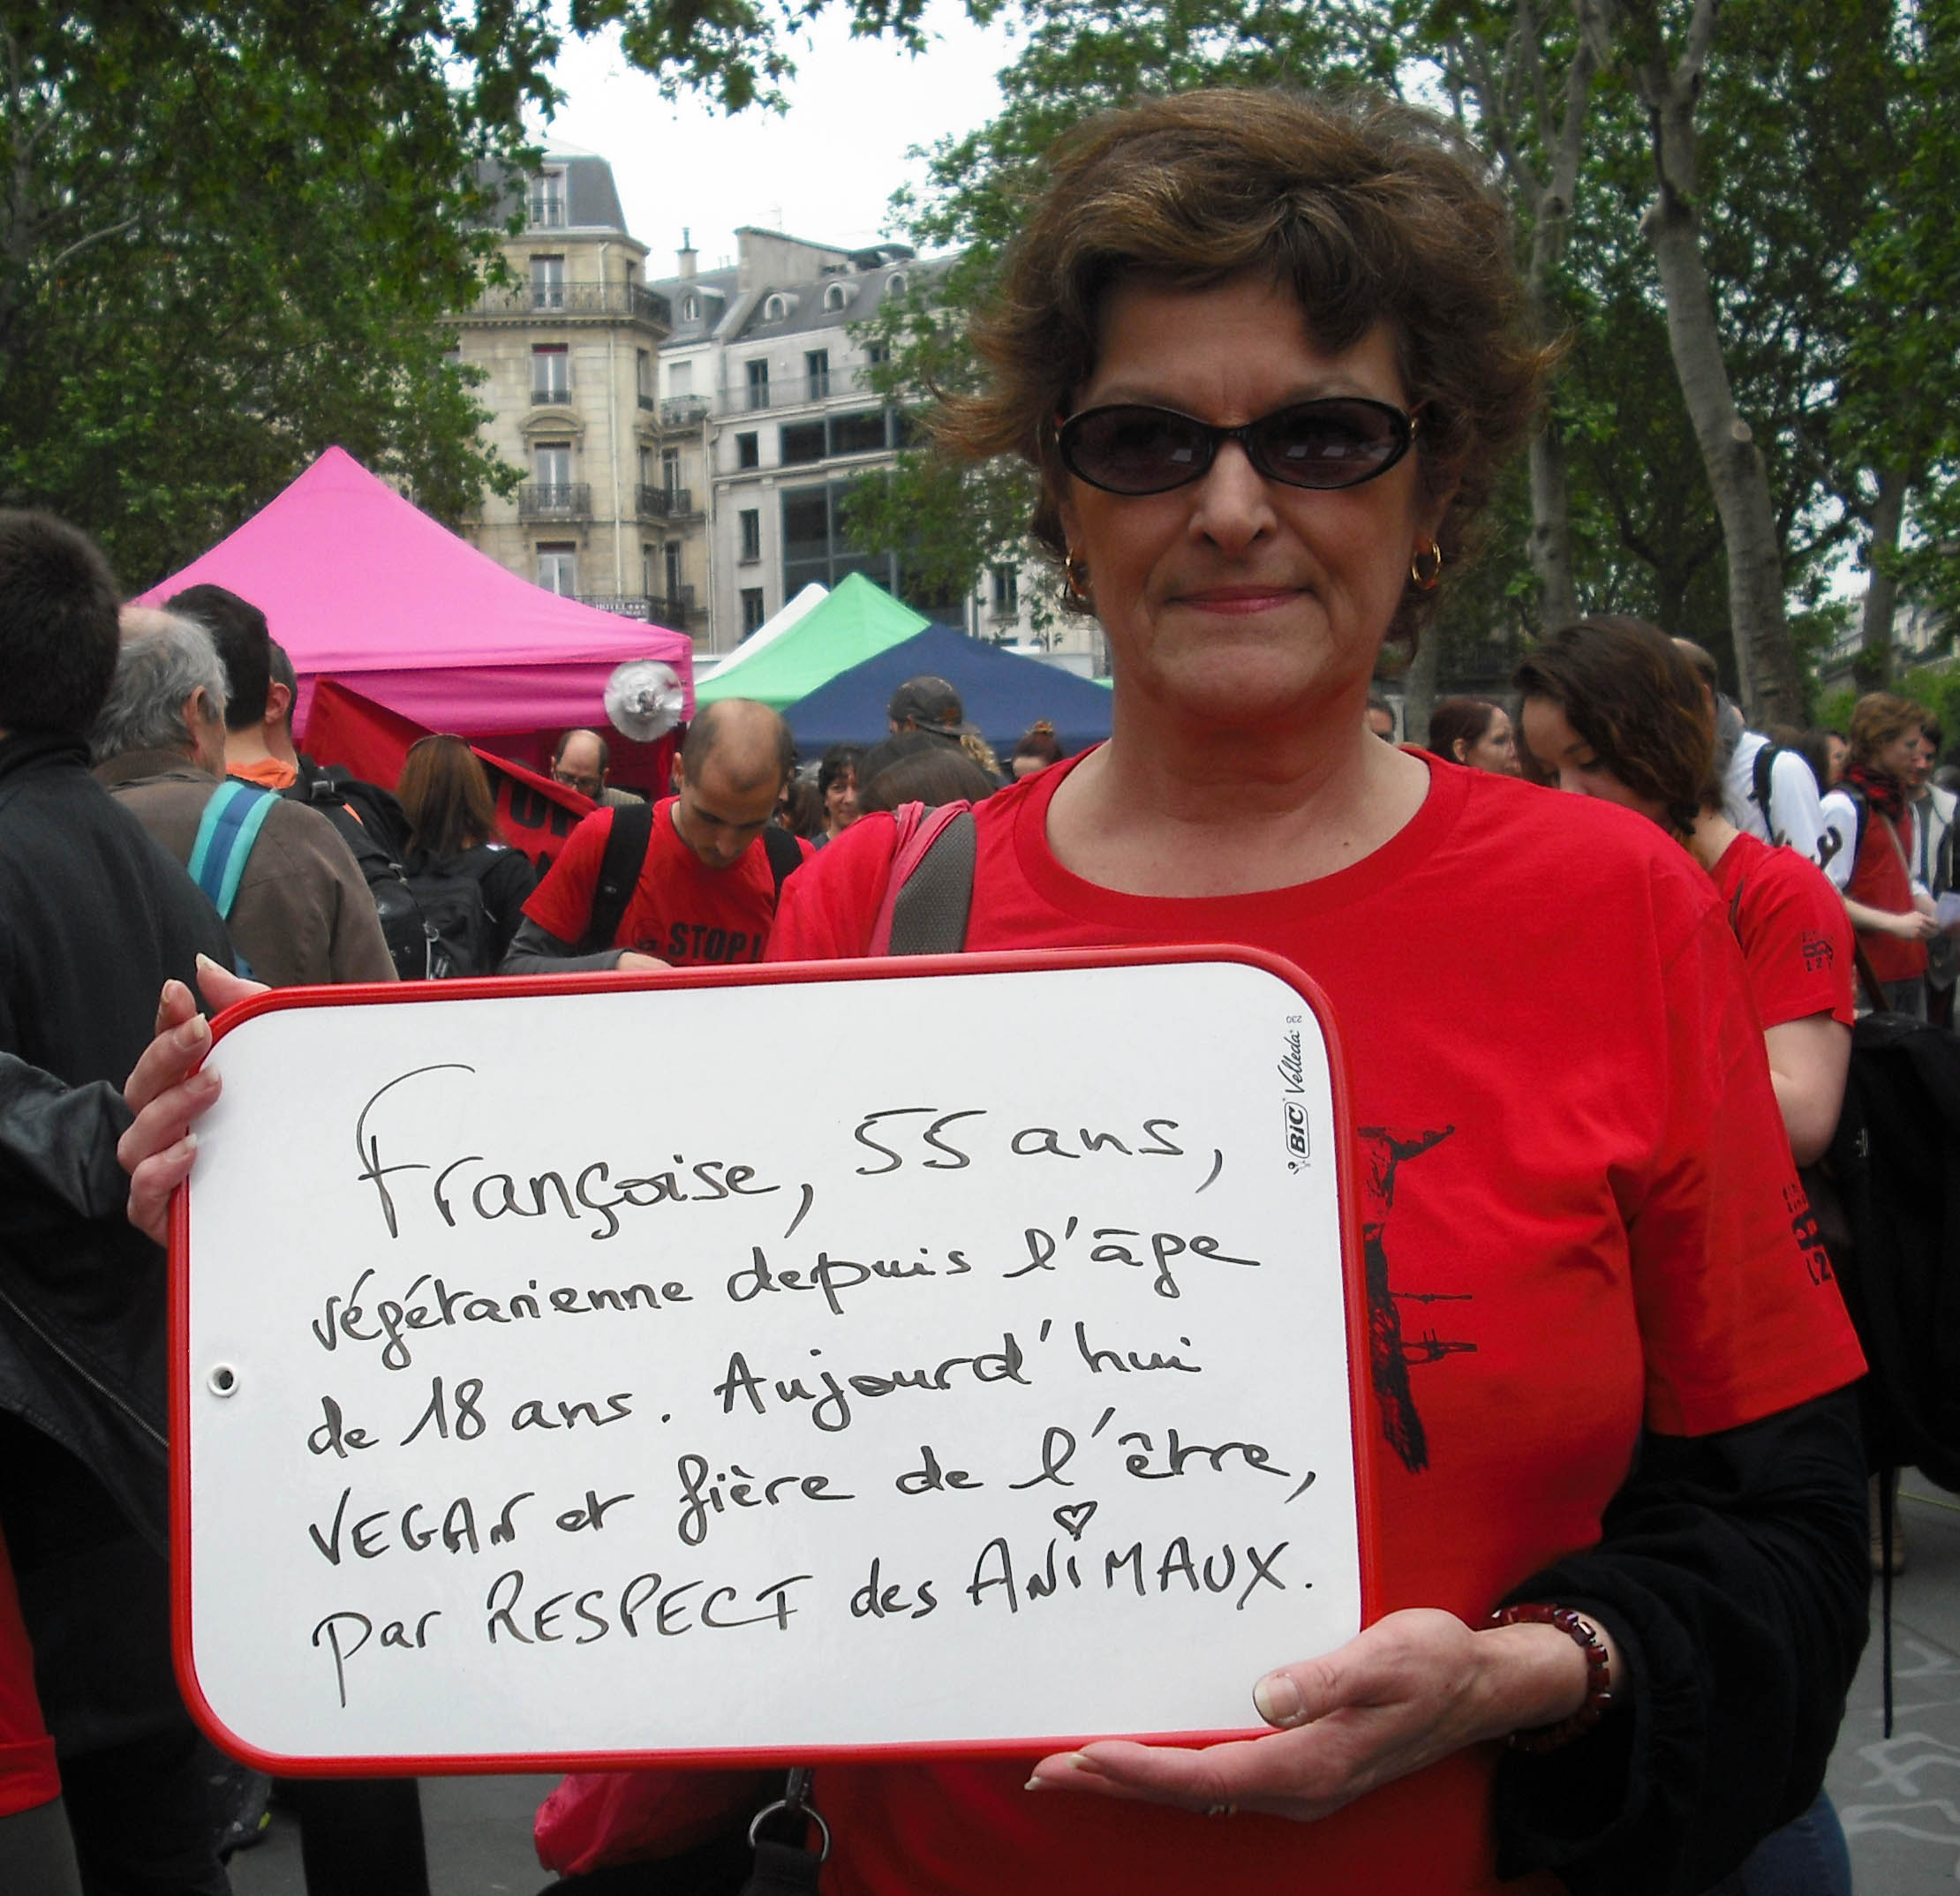 Françoise, 55 ans,
végétarienne depuis l'âge
de 18 ans. Aujourd'hui
VEGAN et fière de l'être,
par RESPECT des ANiMAUX.
BIC Velleda
STOP
HOTEL